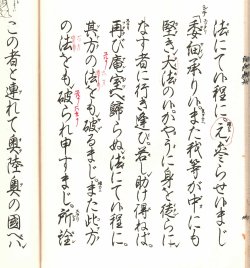 法にて候程に。え参らせ候まじ
「委細承り候。また我等が中にも
堅き大法の候。かやうに身を徒らに
なす者に行き逢ひ。若し助け得ねば。
再び庵室へ歸らぬ法にて候程に。
其方の法をも破るまじ。また此方
の法をも破られ申すまじ。所詮
この者と連れて奥陸奥の國へ